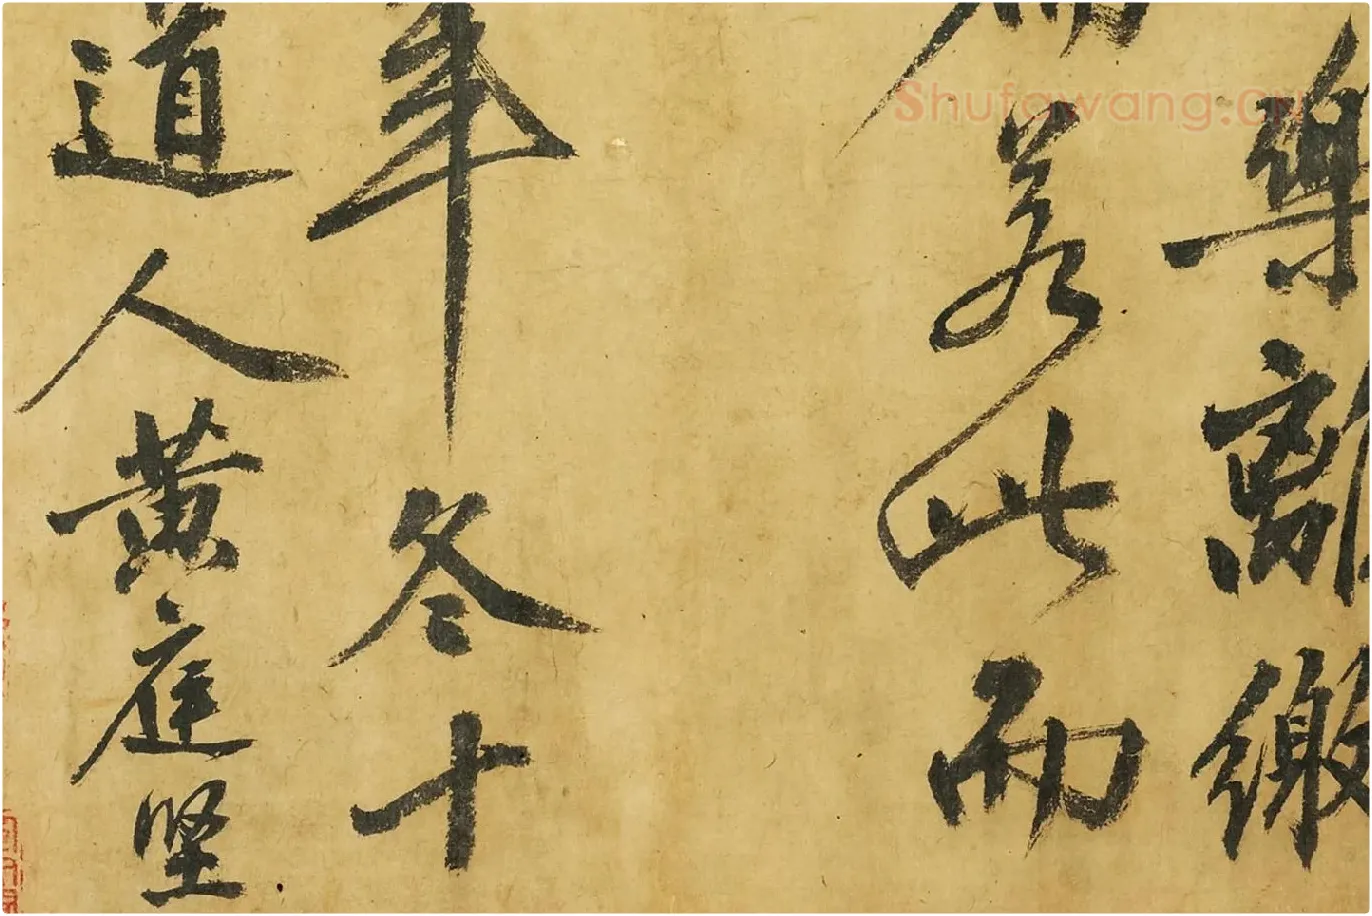 樂離繳
若此而
年冬十
道人黃庭堅
Shufawang.cn